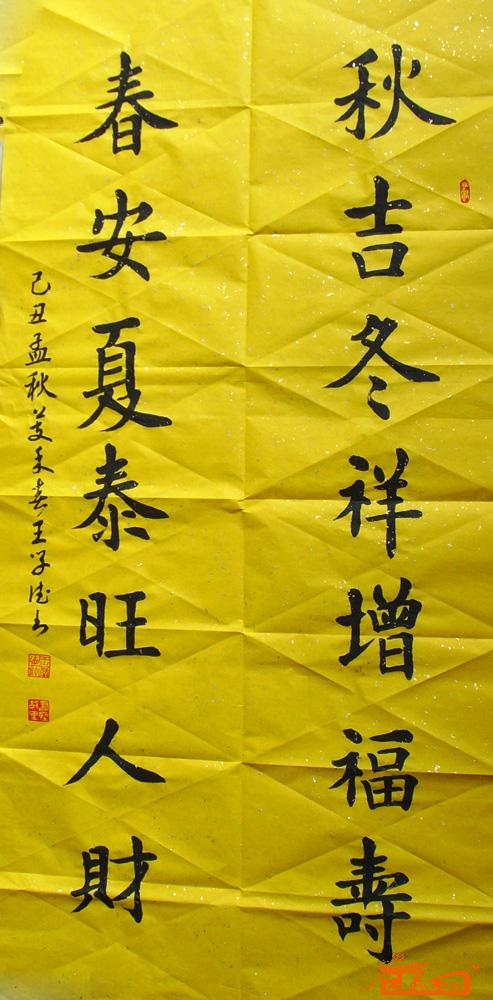 秋吉冬祥增福壽
春安夏泰旺人財
己丑孟秋
王学德书